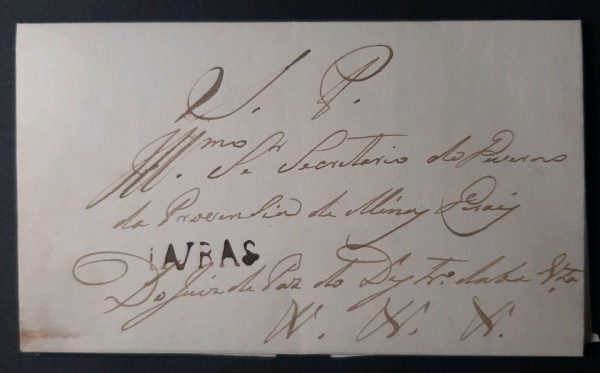 S. P.
Ill.mo Sr. Secretario do Governo
da Provensia de Minas Geraes
LAVRAS
Do Juiz de Paz do Destro. da
N. N. N.